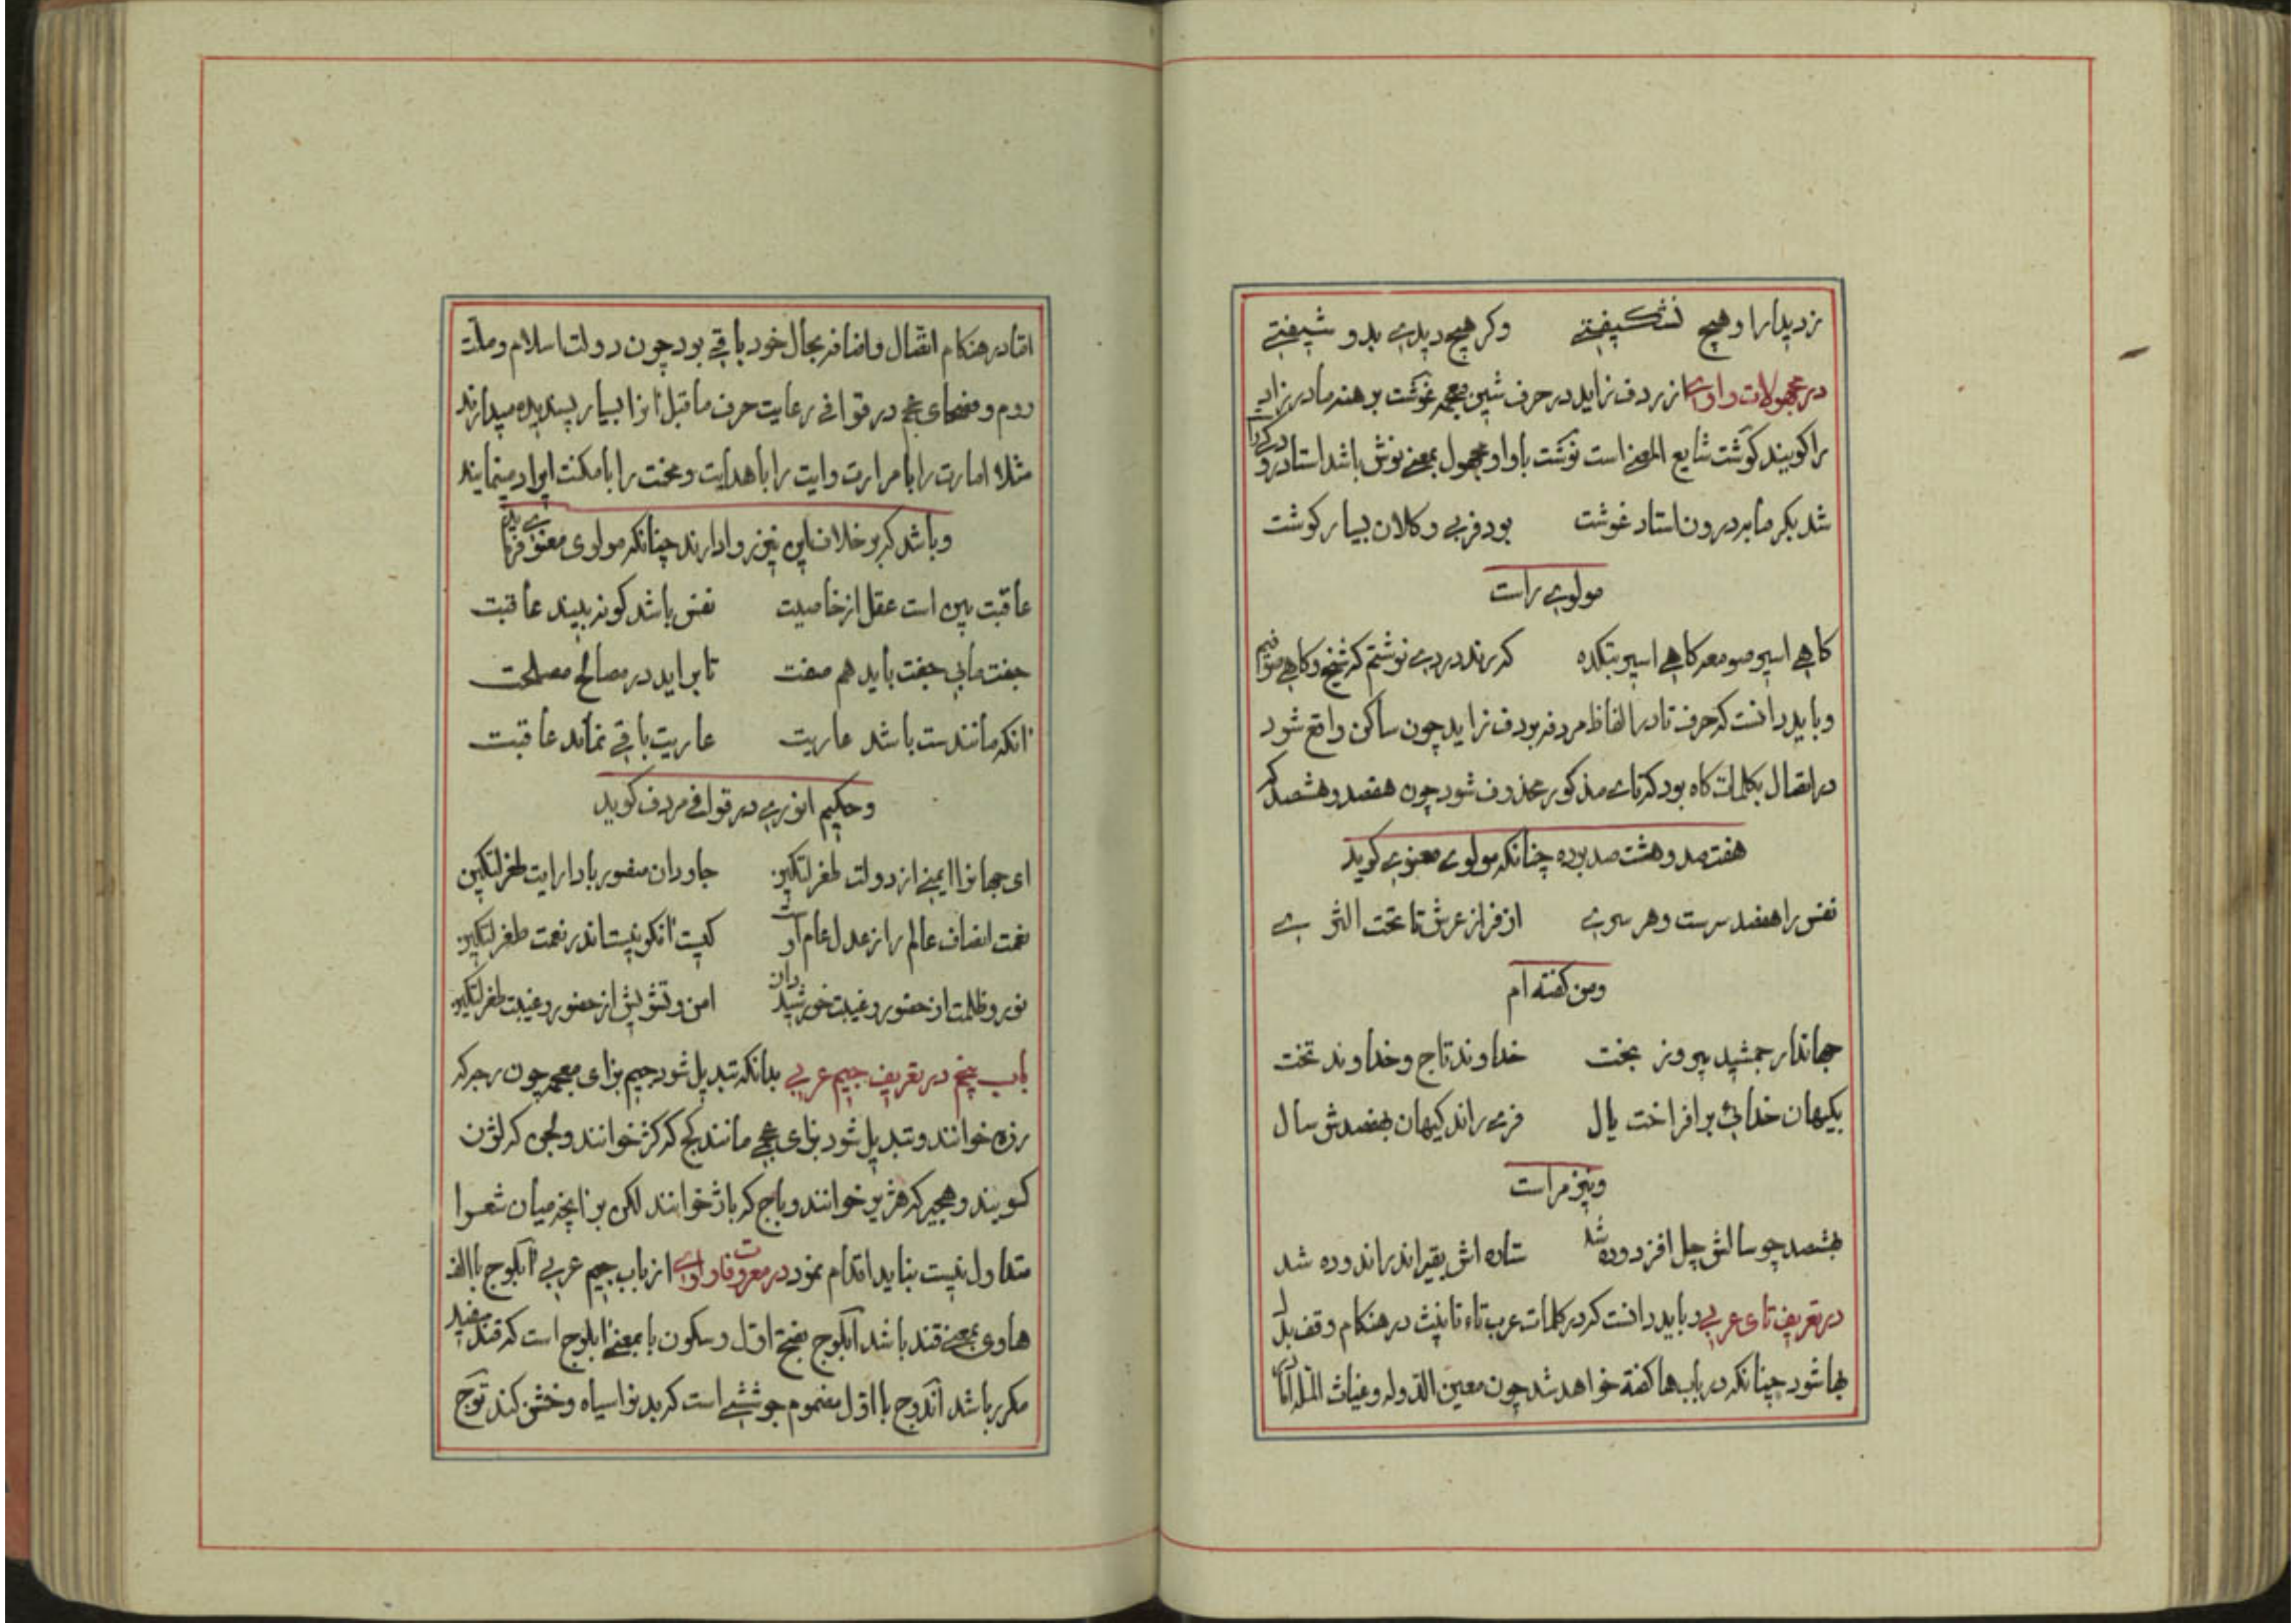 نزدیدار او هیچ نشکیفتی وکر هیچ دیدی بدو شیفتی
در مجهولات واوی از ردف زاید در حرف شین معجمه غوشت برهنه مادر زاد
را کویند کوشت شایع المعنی است نوشت باواو مجهول بمعنی نوش باشد استاد
شد بکرمابه درون استاد غوشت بود فربی وکلان بسیار کوشت
مولوی راست
کاهی اسیر صومعه کاهی اسیر بتکده که رند دردی نوشم که شیخ وکاهی صوفیم
وباید دانست که حرف تا در الفاظ مردفه بردف زاید چون ساکن واقع شود
در اتصال بکلمات کاه بود که تای مذکور محذوف شود چون هفصد وهشصد که
هفت صد وهشت صد بوده چنانکه مولوی معنوی کوید
نفس را هفصد سرست وهر سری از فراز عرش تا تحت الثری
ومن کفته ام
جهاندار جمشید پیروز بخت خداوند تاج وخداوند تخت
بکیهان خدائی برافراخت یال فزی راند کیهان بهفصدش سال
ونیز مراست
بهشصد چو سالش چل افزوده شد ستاره اش بقیر اندر اندوده شد
در تعریف تای عربی وباید دانست که در کلمات عرب تاء تانیث در هنکام وقف بدل
بها شود چنانکه در باب ها کفته خواهد شد چون معین الدوله وغیاث المله
اما در هنکام اتصال واضافه بحال خود باقی بود چون دولت اسلام وملت
روم وفصحای عجم در قوافی رعایت حرف ماقبل انرا بسیار پسندیده میدارند
مثلا امارت را با مرارت وایت را با هدایت ومحنت را با مکنت ایراد مینمایند
وباشد که بر خلاف این نیز روا دارند چنانکه مولوی معنوی فرماید
عاقبت بین است عقل از خاصیت نفس باشد کو نه بیند عاقبت
جفت مایی جفت باید هم صفت تا براید در مصالح مصلحت
انکه مانندست باشد عاریت عاریت باقی نماند عاقبت
وحکیم انوری در قوافی مردف کوید
ای جهانرا ایمنی از دولت طغرلتکین جاودان منصور بادا رایت طغرلتکین
نعمت انصاف عالم را ز عدل عام اوست کیست انکو نیست اندر نعمت طغرلتکین
نور وظلمت از حضور وغیبت خورشید دان امن وتشویش از حضور وغیبت طغرلتکین
باب پنج در تعریف جیم عربی بدانکه تبدیل شود جیم بزای معجمه چون رجه که
رزه خوانند وتبدیل شود بزای عجمی مانند کج که کژ خوانند ولجن که لژن
کویند وهجیر که هژیر خوانند وباج که باژ خوانند لکن بر انچه میان شعرا
متداول نیست بناید اقدام نمود در معروفات واوی از باب جیم عربی آبلوج باالف
هاوی بمعنی قند باشد آبلوج بفتح اول وسکون با بمعنی ابلوج است که قند سفید
مکرر باشد آندوج بااول مضموم جوششی است که بدنرا سیاه وخشن کند توج